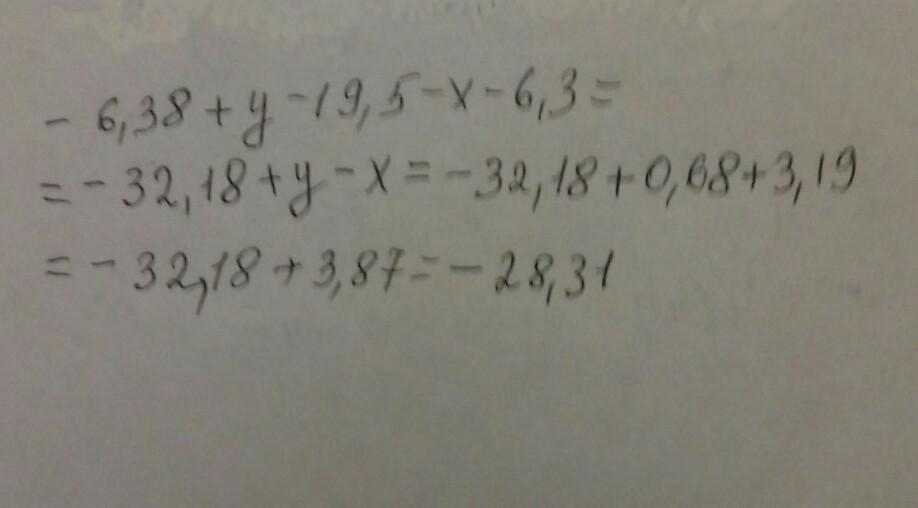 - 6,38 + y - 19,5 - x - 6,3 =
= - 32,18 + y - x = - 32,18 + 0,68 + 3,19
= - 32,18 + 3,87 = - 28,31